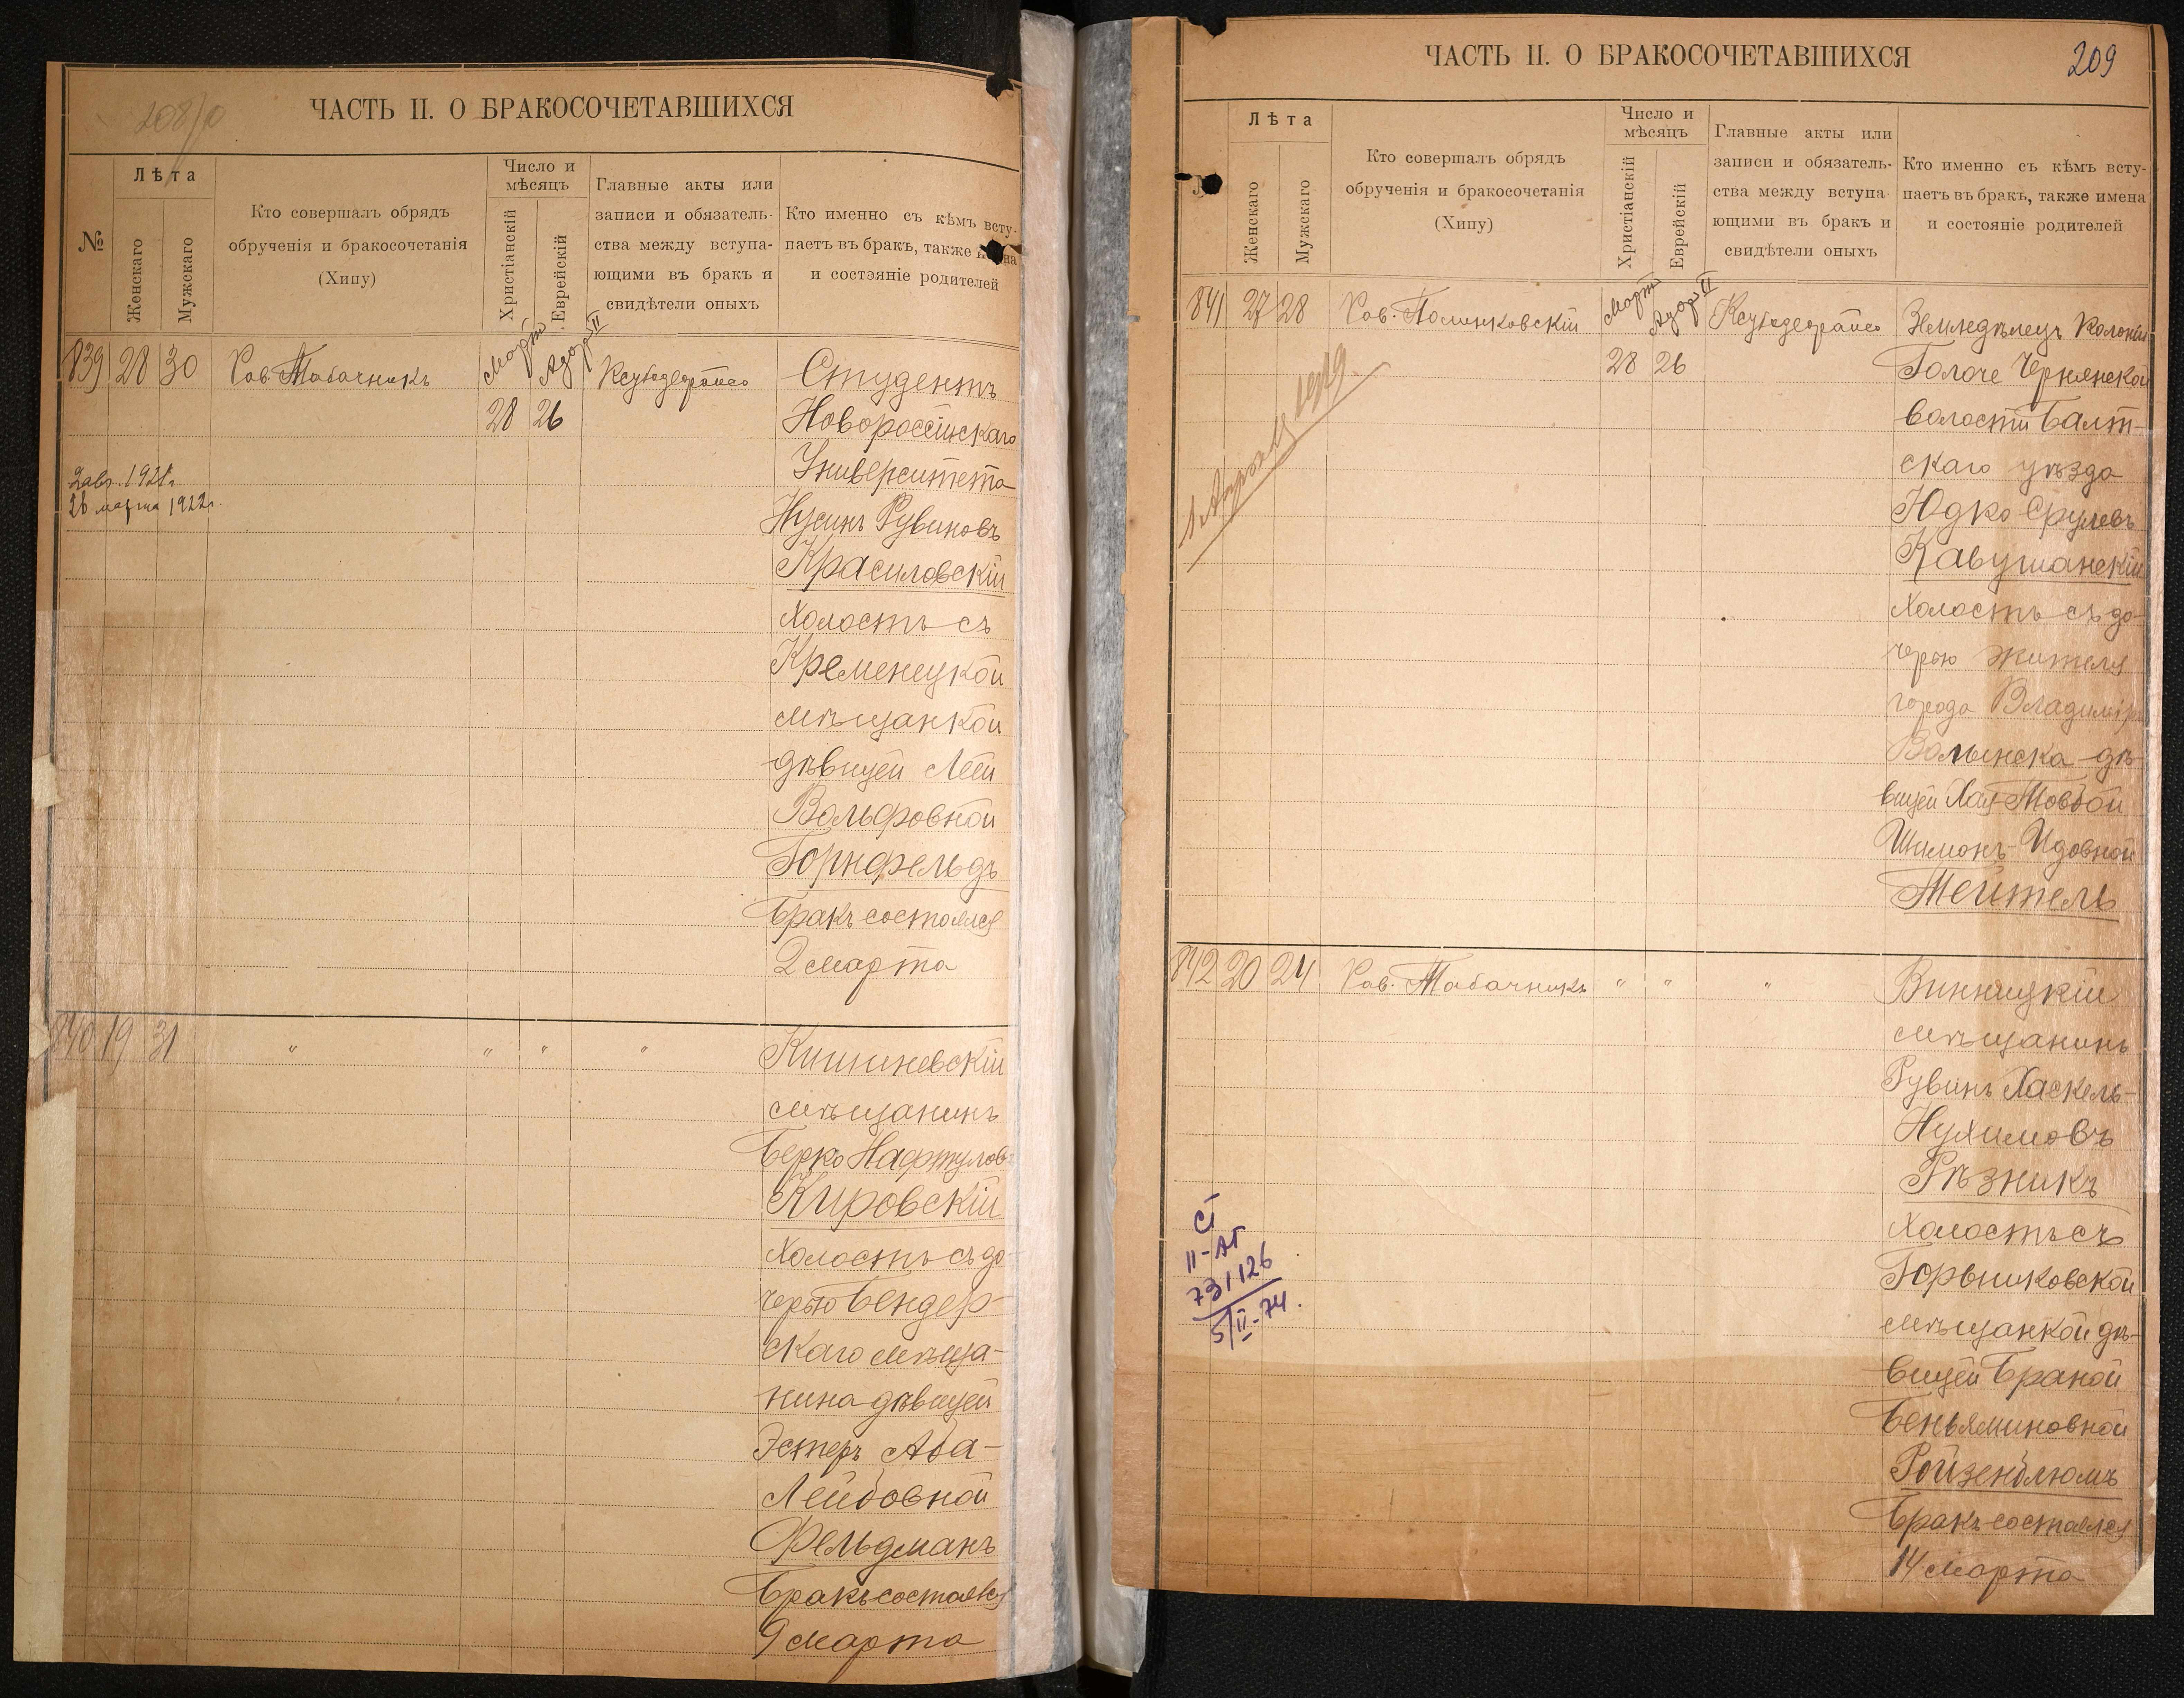 208/о
ЧАСТЬ II. О БРАКОСОЧЕТАВШИХСЯ
№
Лѣта
Женскаго
Мужскаго
Кто совершалъ обрядъ
обрученія и бракосочетанія
(Хипу)
Число и
мѣсяцъ
Христіанскій
Еврейскій
Главные акты или
записи и обязатель-
ства между вступа-
ющими въ бракъ и
свидѣтели оныхъ
Кто именно съ кѣмъ всту-
паетъ въ бракъ, также имена
и состэяніе родителей
839 28 30 Рав. Табачникъ Мартъ Адаръ II
28 26
Студентъ
Новороссійскаго
Университета
Нусинъ Рувиновъ
Красиловскій
холостъ съ
Кременецкой
мѣщанкой
дѣвицей Леей
Вольфовной
Горнфельдъ
Бракъ состоялся
2 марта
26 марта 1922г.
840 19 31 " " " "
Кишиневскій
мѣщанинъ
Берко Нафтуловъ
Кировскій
холостъ съ до-
черью Бендер-
скаго мѣща-
нина дѣвицей
Эстеръ Аба-
Лейбовной
Фельдманъ
Бракъ состоялся
9 марта
209
ЧАСТЬ II. О БРАКОСОЧЕТАВШИХСЯ
Лѣта
Женскаго
Мужскаго
Кто совершалъ обрядъ
обрученія и бракосочетанія
(Хипу)
Число и
мѣсяцъ
Христіанскій
Еврейскій
Главные акты или
записи и обязатель-
ства между вступа-
ющими въ бракъ и
свидѣтели оныхъ
Кто именно съ кѣмъ всту-
паетъ въ бракъ, также имена
и состояніе родителей
841 27 28 Рав. Полинковскій Мартъ Адаръ II
28 26
Земледѣлецъ Колоніи
Голоче Чернянской
волости Балт-
скаго уѣзда
Юдко Срулевъ
Кавушанскій
холостъ съ до-
черью жителя
города Владиміръ
Волынска дѣ-
вицей Хая-Товбой
Шимонъ-Идовной
Тейтель
842 20 24 Рав. Табачникъ " " "
Винницкій
мѣщанинъ
Рувинъ Хаскель-
Нухимовъ
Рѣзникъ
холостъ съ
Торьшковской
мѣщанкой дѣ-
вицей Браной
Беньяминовной
Ройзенблюмъ
Бракъ состоялся
14 марта
II-АГ
731126
5/II-74.